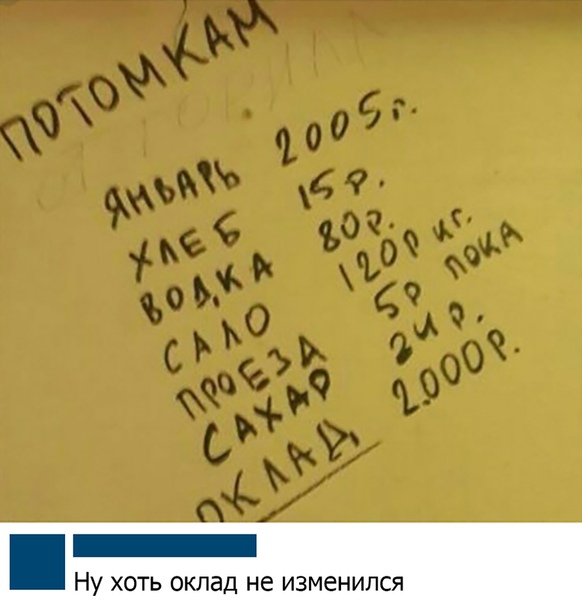 ПОТОМКАМ
ЯНВАРЬ 2005г.
ХЛЕБ 15р.
ВОДКА 80р.
САЛО 120р кг.
ПРОЕЗД 5р ПОКА
САХАР 24р.
ОКЛАД 2.000р.
Ну хоть оклад не изменился